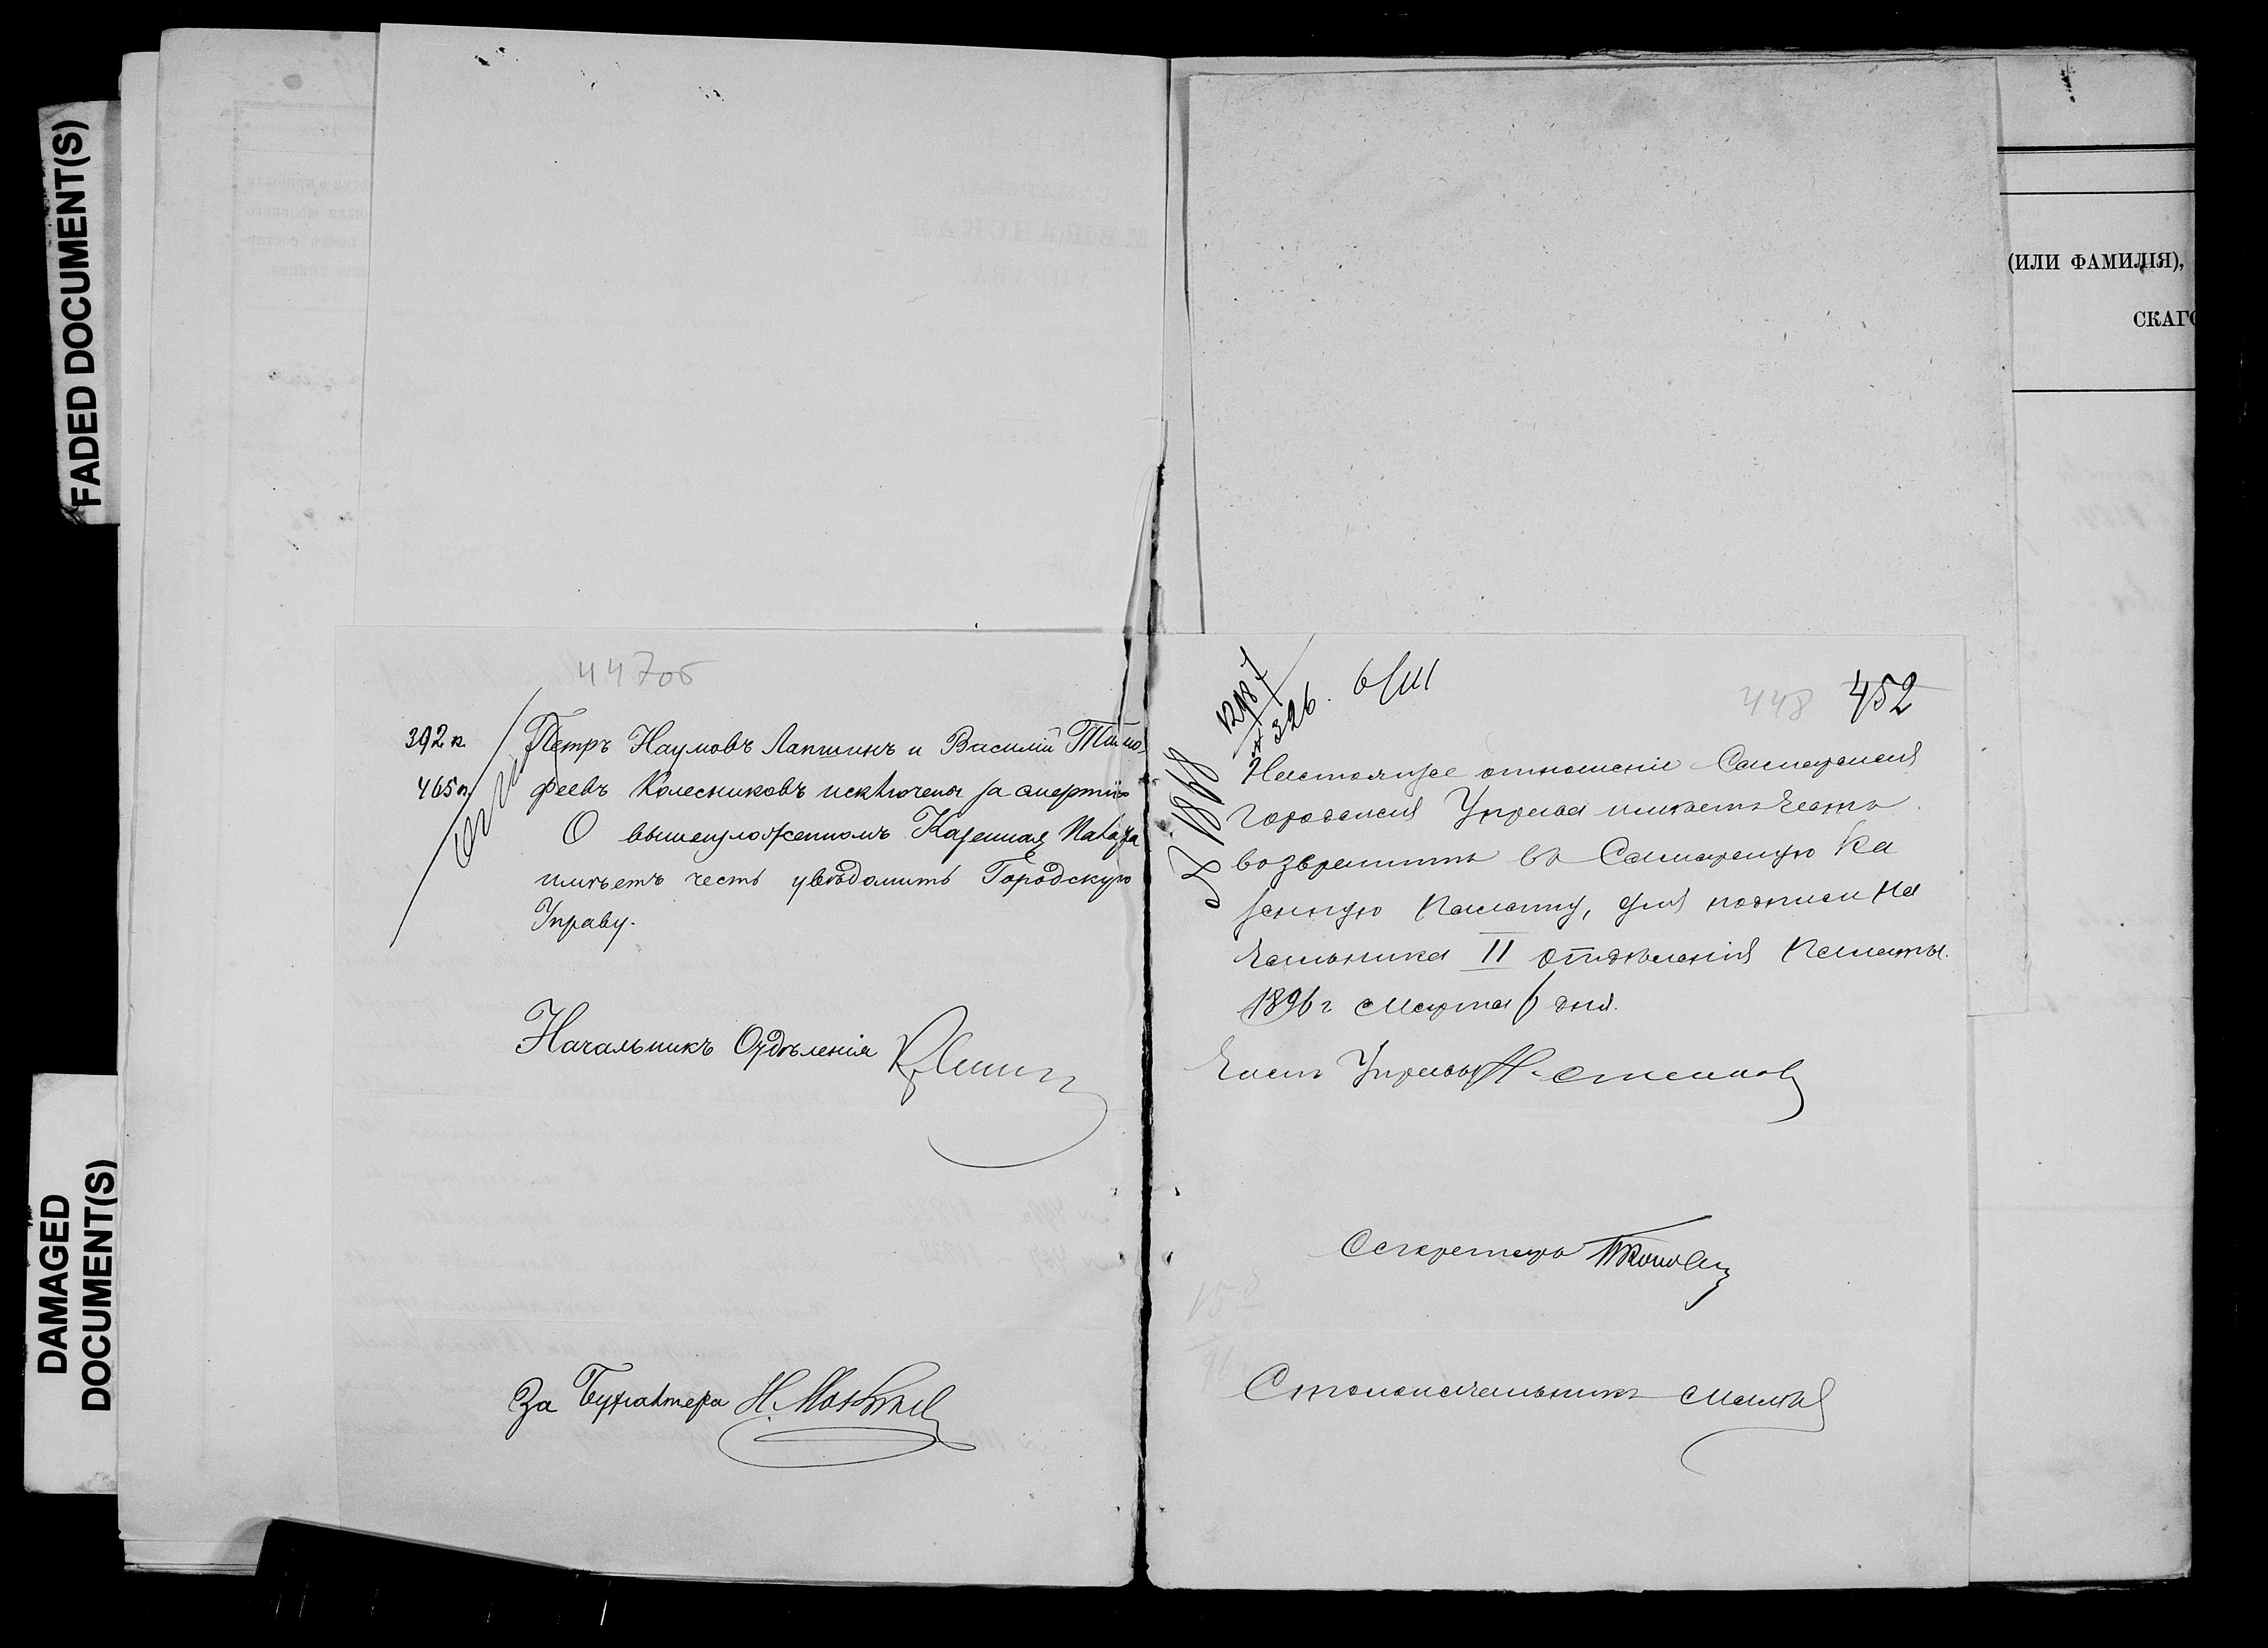 FADED DOCUMENT(S)
DAMAGED
DOCUMENT(S)
447об
392 п.
465 п.
Петръ Наумовъ Лапшинъ и Василій Тимо-
феевъ Колесниковъ исключены за смертію
О вышеизложенномъ Казенная Палата
имѣетъ честь увѣдомить Городскую
Управу.
Начальникъ Отдѣленія
За Бухгалтера
326. 6/III
448 452
Настоящее отношеніе Самарская
Городская Управа имѣетъ честь
возвратить въ Самарскую Ка
зенную Палату, для подписи На
чальника II отдѣленія Палаты.
1896 г Марта 6 дня.
Членъ Управы
Секретарь
Столоначальникъ
(ИЛИ ФАМИЛІЯ),
СКАГО